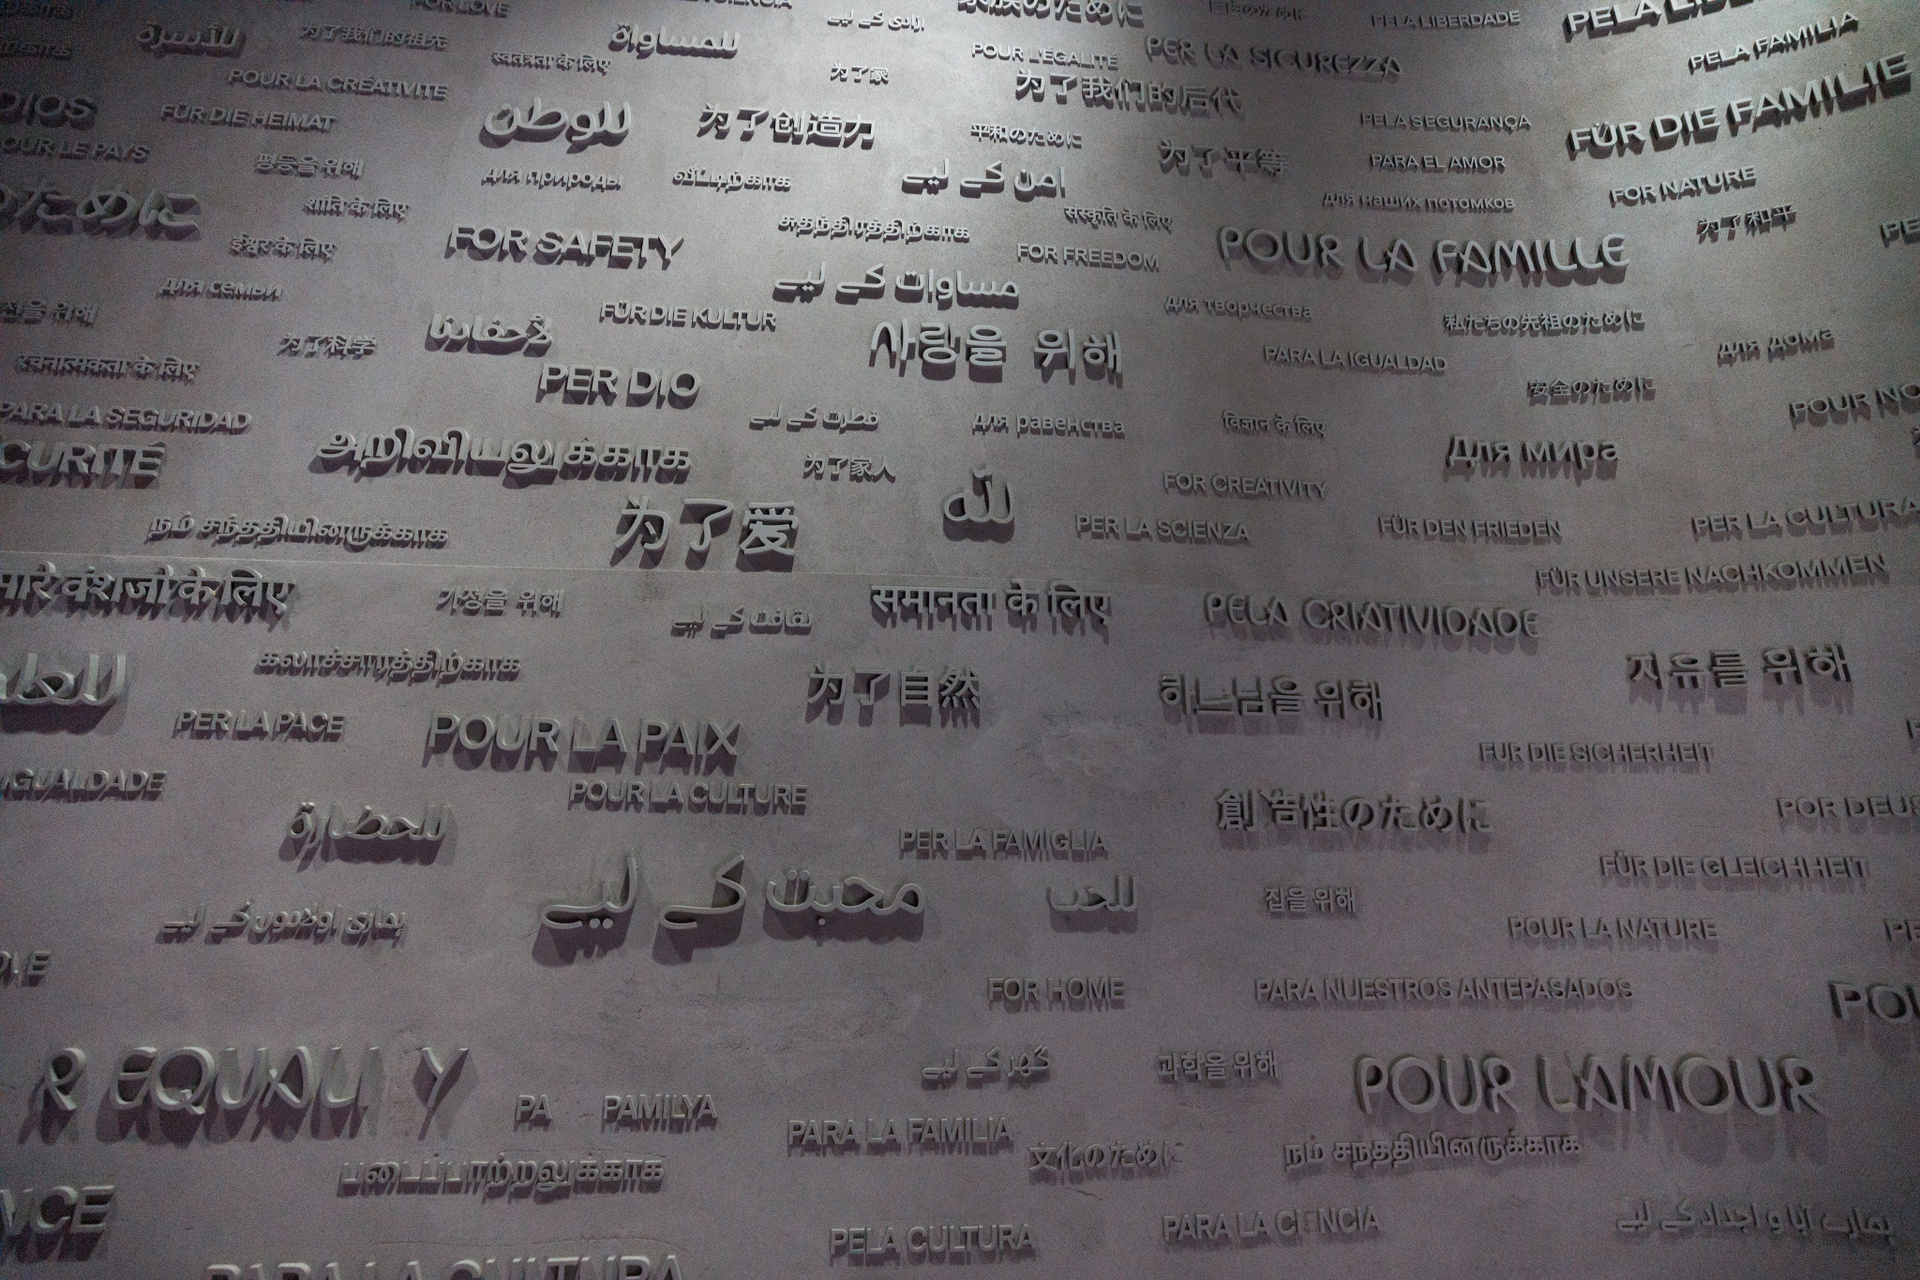 FOR LOVE
家族のために
PELA LIBERDADE
للأسرة
为了我们的祖先
للمساواة
آزادی کے لیے
स्वतंत्रता के लिए
为了家
POUR L'ÉGALITÉ
PER LA SICUREZZA
PELA FAMILIA
POUR LA CRÉATIVITÉ
为了我们的后代
FÜR DIE FAMILIE
DIOS
FÜR DIE HEIMAT
للوطن
为了创造力
平和のために
PELA SEGURANÇA
POUR LE PAYS
평등을 위해
для природы
வீட்டிற்காக
امن کے لیے
为了平等
PARA EL AMOR
FOR NATURE
のために
शांति के लिए
சுதந்திரத்திற்காக
संस्कृति के लिए
для наших потомков
为了和平
ईश्वर के लिए
FOR SAFETY
FOR FREEDOM
POUR LA FAMILLE
для семьи
مساوات کے لیے
для творчества
을 위해
为了科学
لأحفادنا
FÜR DIE KULTUR
사랑을 위해
私たちの先祖のために
для дома
रचनात्मकता के लिए
PER DIO
PARA LA IGUALDAD
安全のために
PARA LA SEGURIDAD
فطرت کے لیے
для равенства
विज्ञान के लिए
POUR NO
CURITÉ
அறிவியலுக்காக
为了家人
للّٰه
Для мира
FOR CREATIVITY
நம் சந்ததியினருக்காக
为了爱
PER LA SCIENZA
FÜR DEN FRIEDEN
PER LA CULTURA
मारे वंशजों के लिए
가정을 위해
ثقافت کے لیے
समानता के लिए
PELA CRIATIVIDADE
FÜR UNSERE NACHKOMMEN
கலாச்சாரத்திற்காக
为了自然
하느님을 위해
자유를 위해
PER LA PACE
POUR LA PAIX
FÜR DIE SICHERHEIT
IGUALDADE
POUR LA CULTURE
للحضارة
PER LA FAMIGLIA
創造性のために
POR DEUS
FÜR DIE GLEICHHEIT
ہماری اولادوں کے لیے
محبت کے لیے
للحب
집을 위해
POUR LA NATURE
OVE
FOR HOME
PARA NUESTROS ANTEPASADOS
POU
R EQUALI Y
گھر کے لیے
과학을 위해
POUR L'AMOUR
PA PAMILYA
PARA LA FAMILIA
文化のために
நம் சந்ததியினருக்காக
படைப்பாற்றலுக்காக
NCE
PELA CULTURA
PARA LA CIENCIA
ہمارے آبا و اجداد کے لیے
PARA LA CULTURA